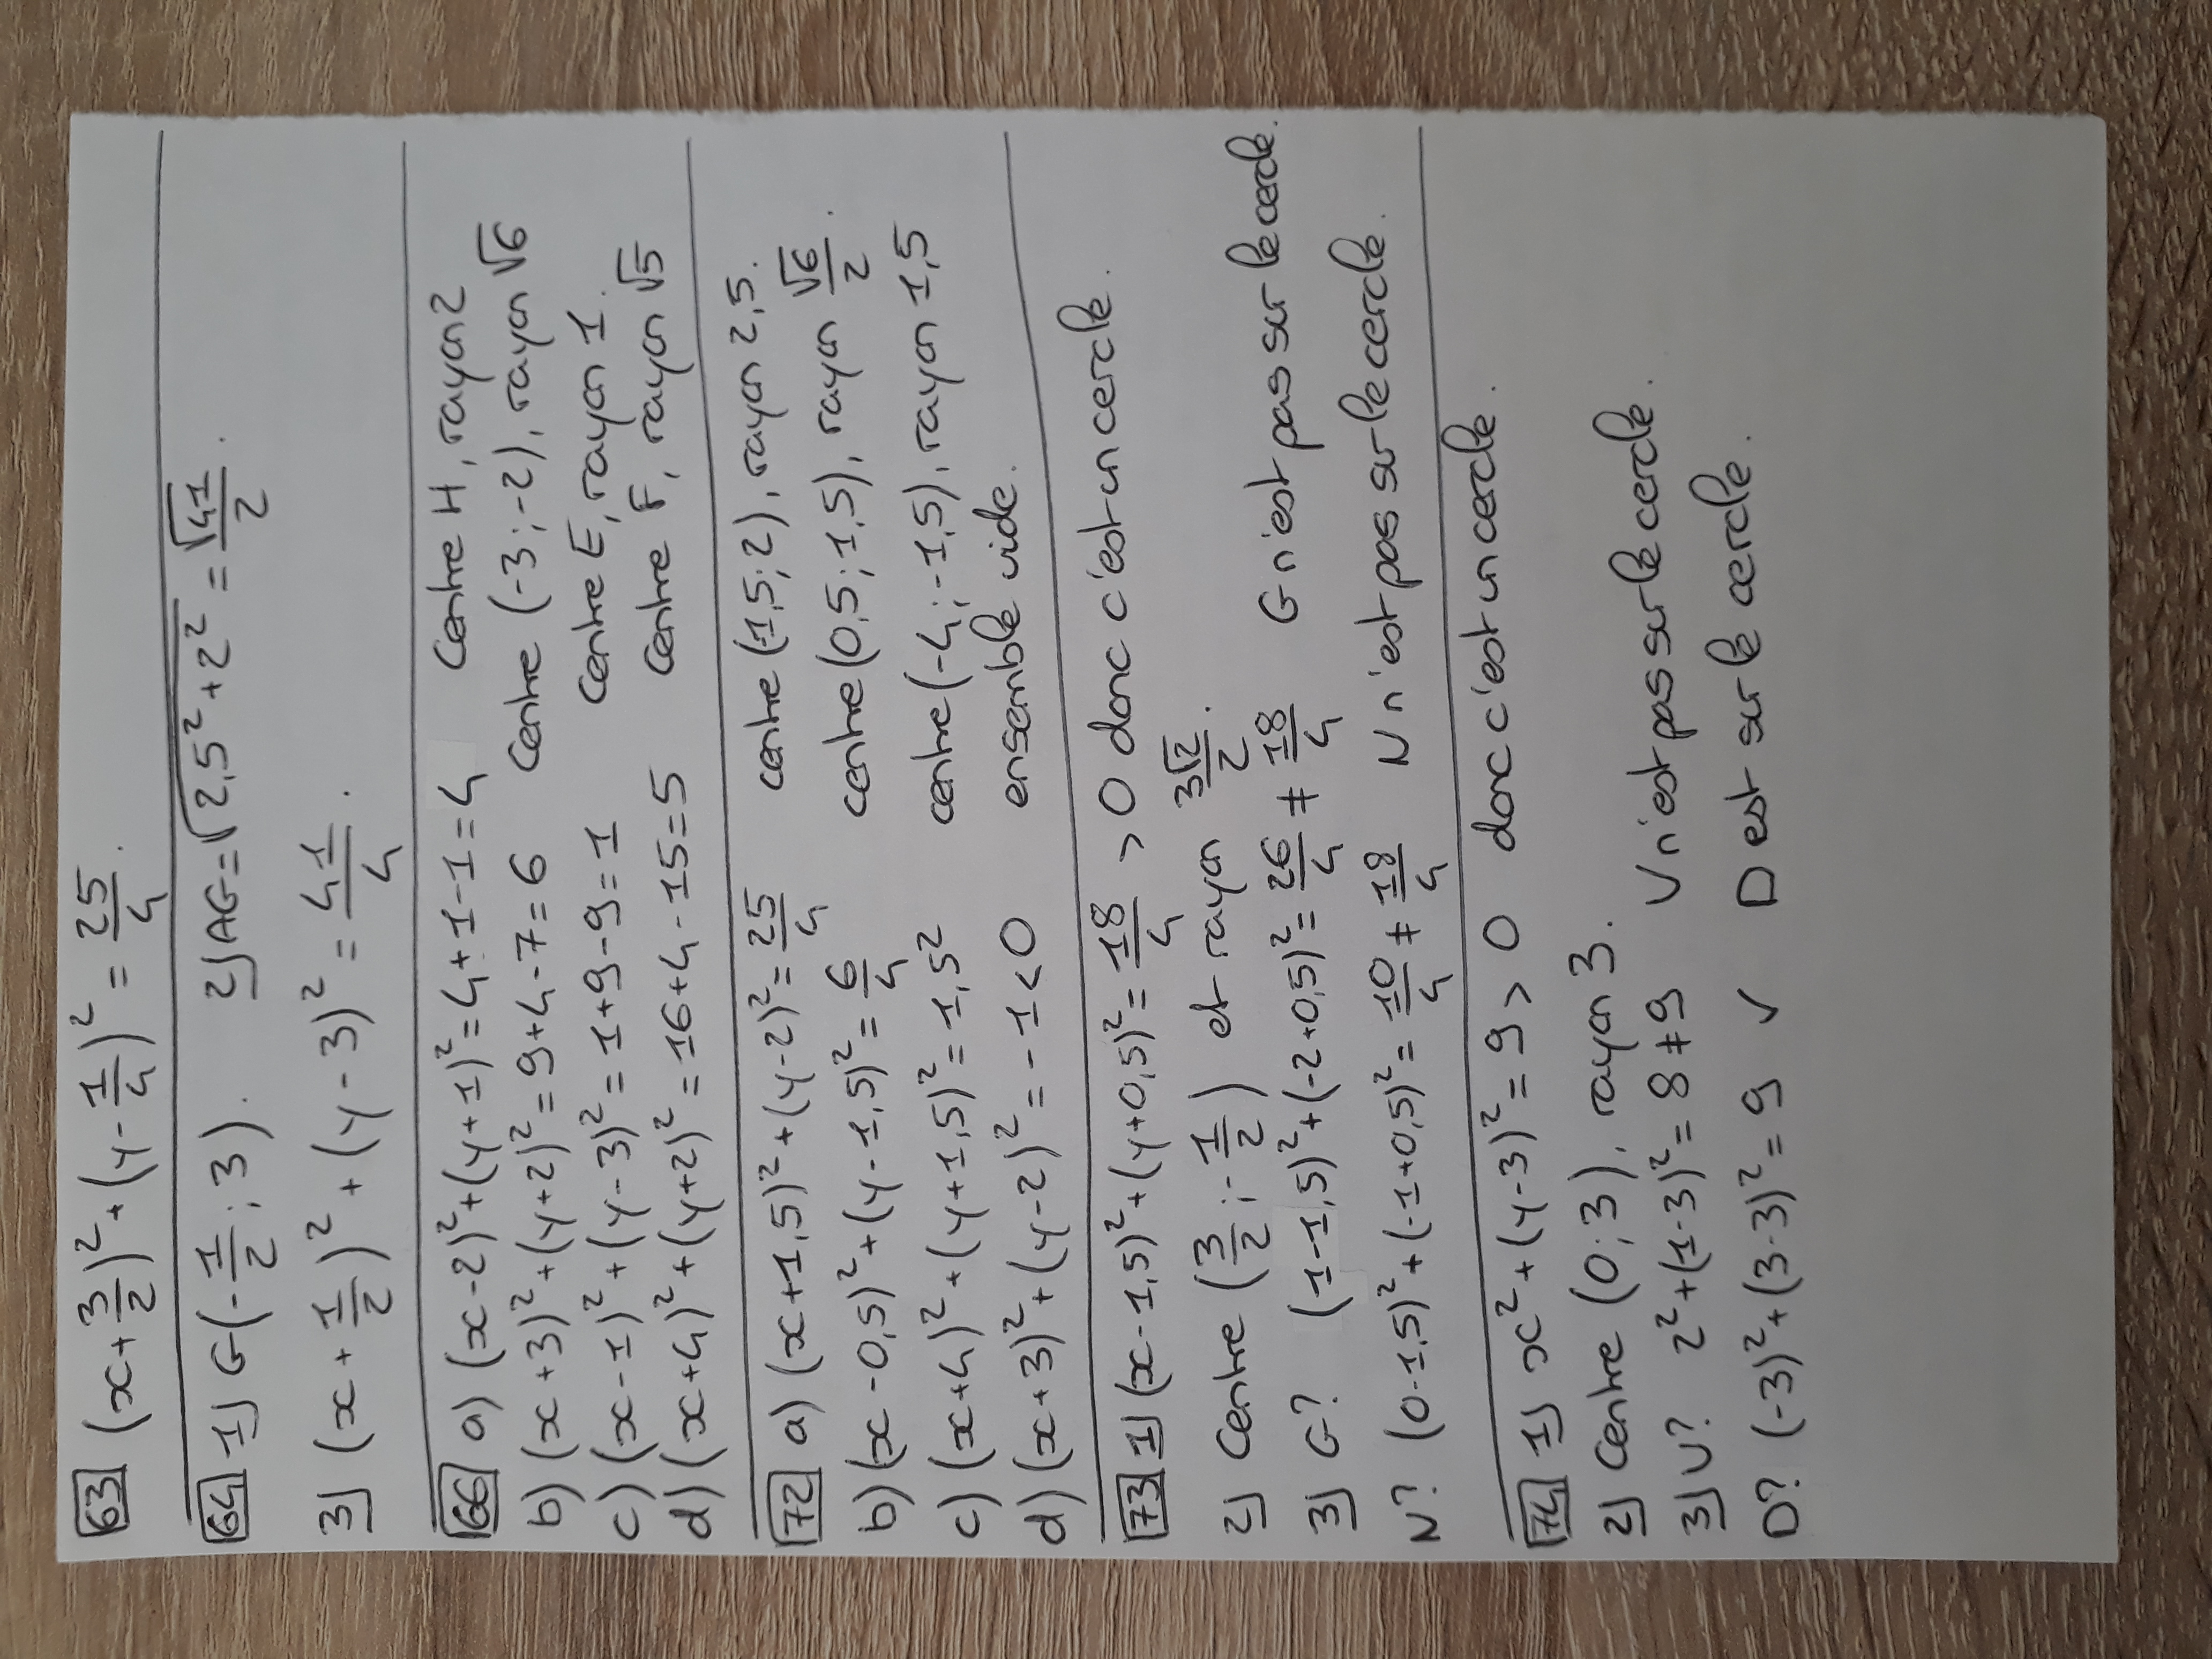 63 (x+3/2)²+(y-1/4)² = 25/4.
64 1) G(-1/2 ; 3). 2) AG=√(2,5²+2²) = √41/2.
3) (x+1/2)² + (y-3)² = 41/4.
66 a) (x-2)²+(y+1)²=4+1-1=4 Centre H, rayon 2
b) (x+3)²+(y+2)²=9+4-7=6 Centre (-3;-2), rayon √6
c) (x-1)²+(y-3)²=1+9-9=1 Centre E, rayon 1.
d) (x+4)²+(y+2)²=16+4-15=5 Centre F, rayon √5
72 a) (x+1,5)²+(y-2)²=25/4 centre (-1,5;2), rayon 2,5.
b) (x-0,5)²+(y-1,5)²=6/4 centre (0,5;1,5), rayon √6/2.
c) (x+4)²+(y+1,5)²=1,5² centre (-4;-1,5), rayon 1,5
d) (x+3)²+(y-2)²=-1<0 ensemble vide.
73 1) (x-1,5)²+(y+0,5)²=18/4 >0 donc c'est un cercle.
2) Centre (3/2 ; -1/2) et rayon 3√2/2.
3) G? (1-1,5)²+(-2+0,5)²=26/4 ≠ 18/4 G n'est pas sur le cercle.
N? (0-1,5)²+(-1+0,5)²=10/4 ≠ 18/4 N n'est pas sur le cercle.
74 1) x²+(y-3)²=9>0 donc c'est un cercle.
2) Centre (0;3), rayon 3.
3) U? 2²+(1-3)²=8≠9 U n'est pas sur le cercle.
D? (-3)²+(3-3)²=9 ✓ D est sur le cercle.